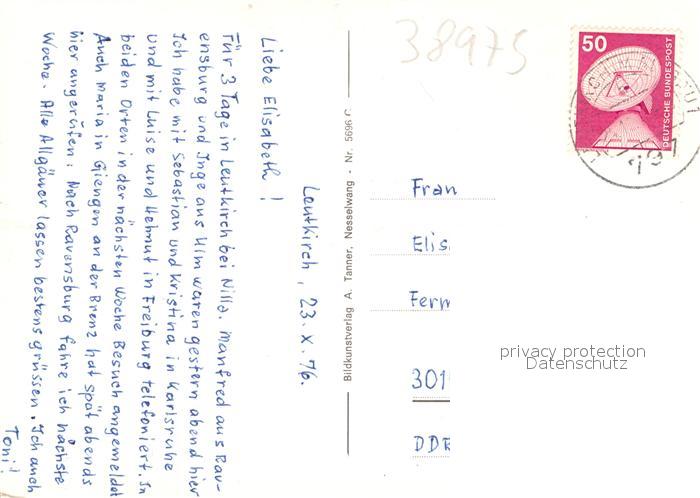 Leutkirch, 23. X. 76.
Liebe Elisabeth!
Für 3 Tage in Leutkirch bei Nilla. Manfred aus Rav-
ensburg und Inge aus Ulm waren gestern abend hier
Ich habe mit Sebastian und Kristina in Karlsruhe
und mit Luise und Helmut in Freiburg telefoniert. In
beiden Orten in der nächsten Woche Besuch angemeldet
Auch Maria in Giengen an der Brenz hat spät abends
hier angerufen: Nach Ravensburg fahre ich nächste
Woche. Alle Allgäuer lassen bestens grüssen. Ich auch
Toni!
Bildkunstverlag A. Tanner, Nesselwang - Nr. 5696
38975
50
DEUTSCHE BUNDESPOST
Frau
Elis
Ferm
301
DDR
privacy protection
Datenschutz